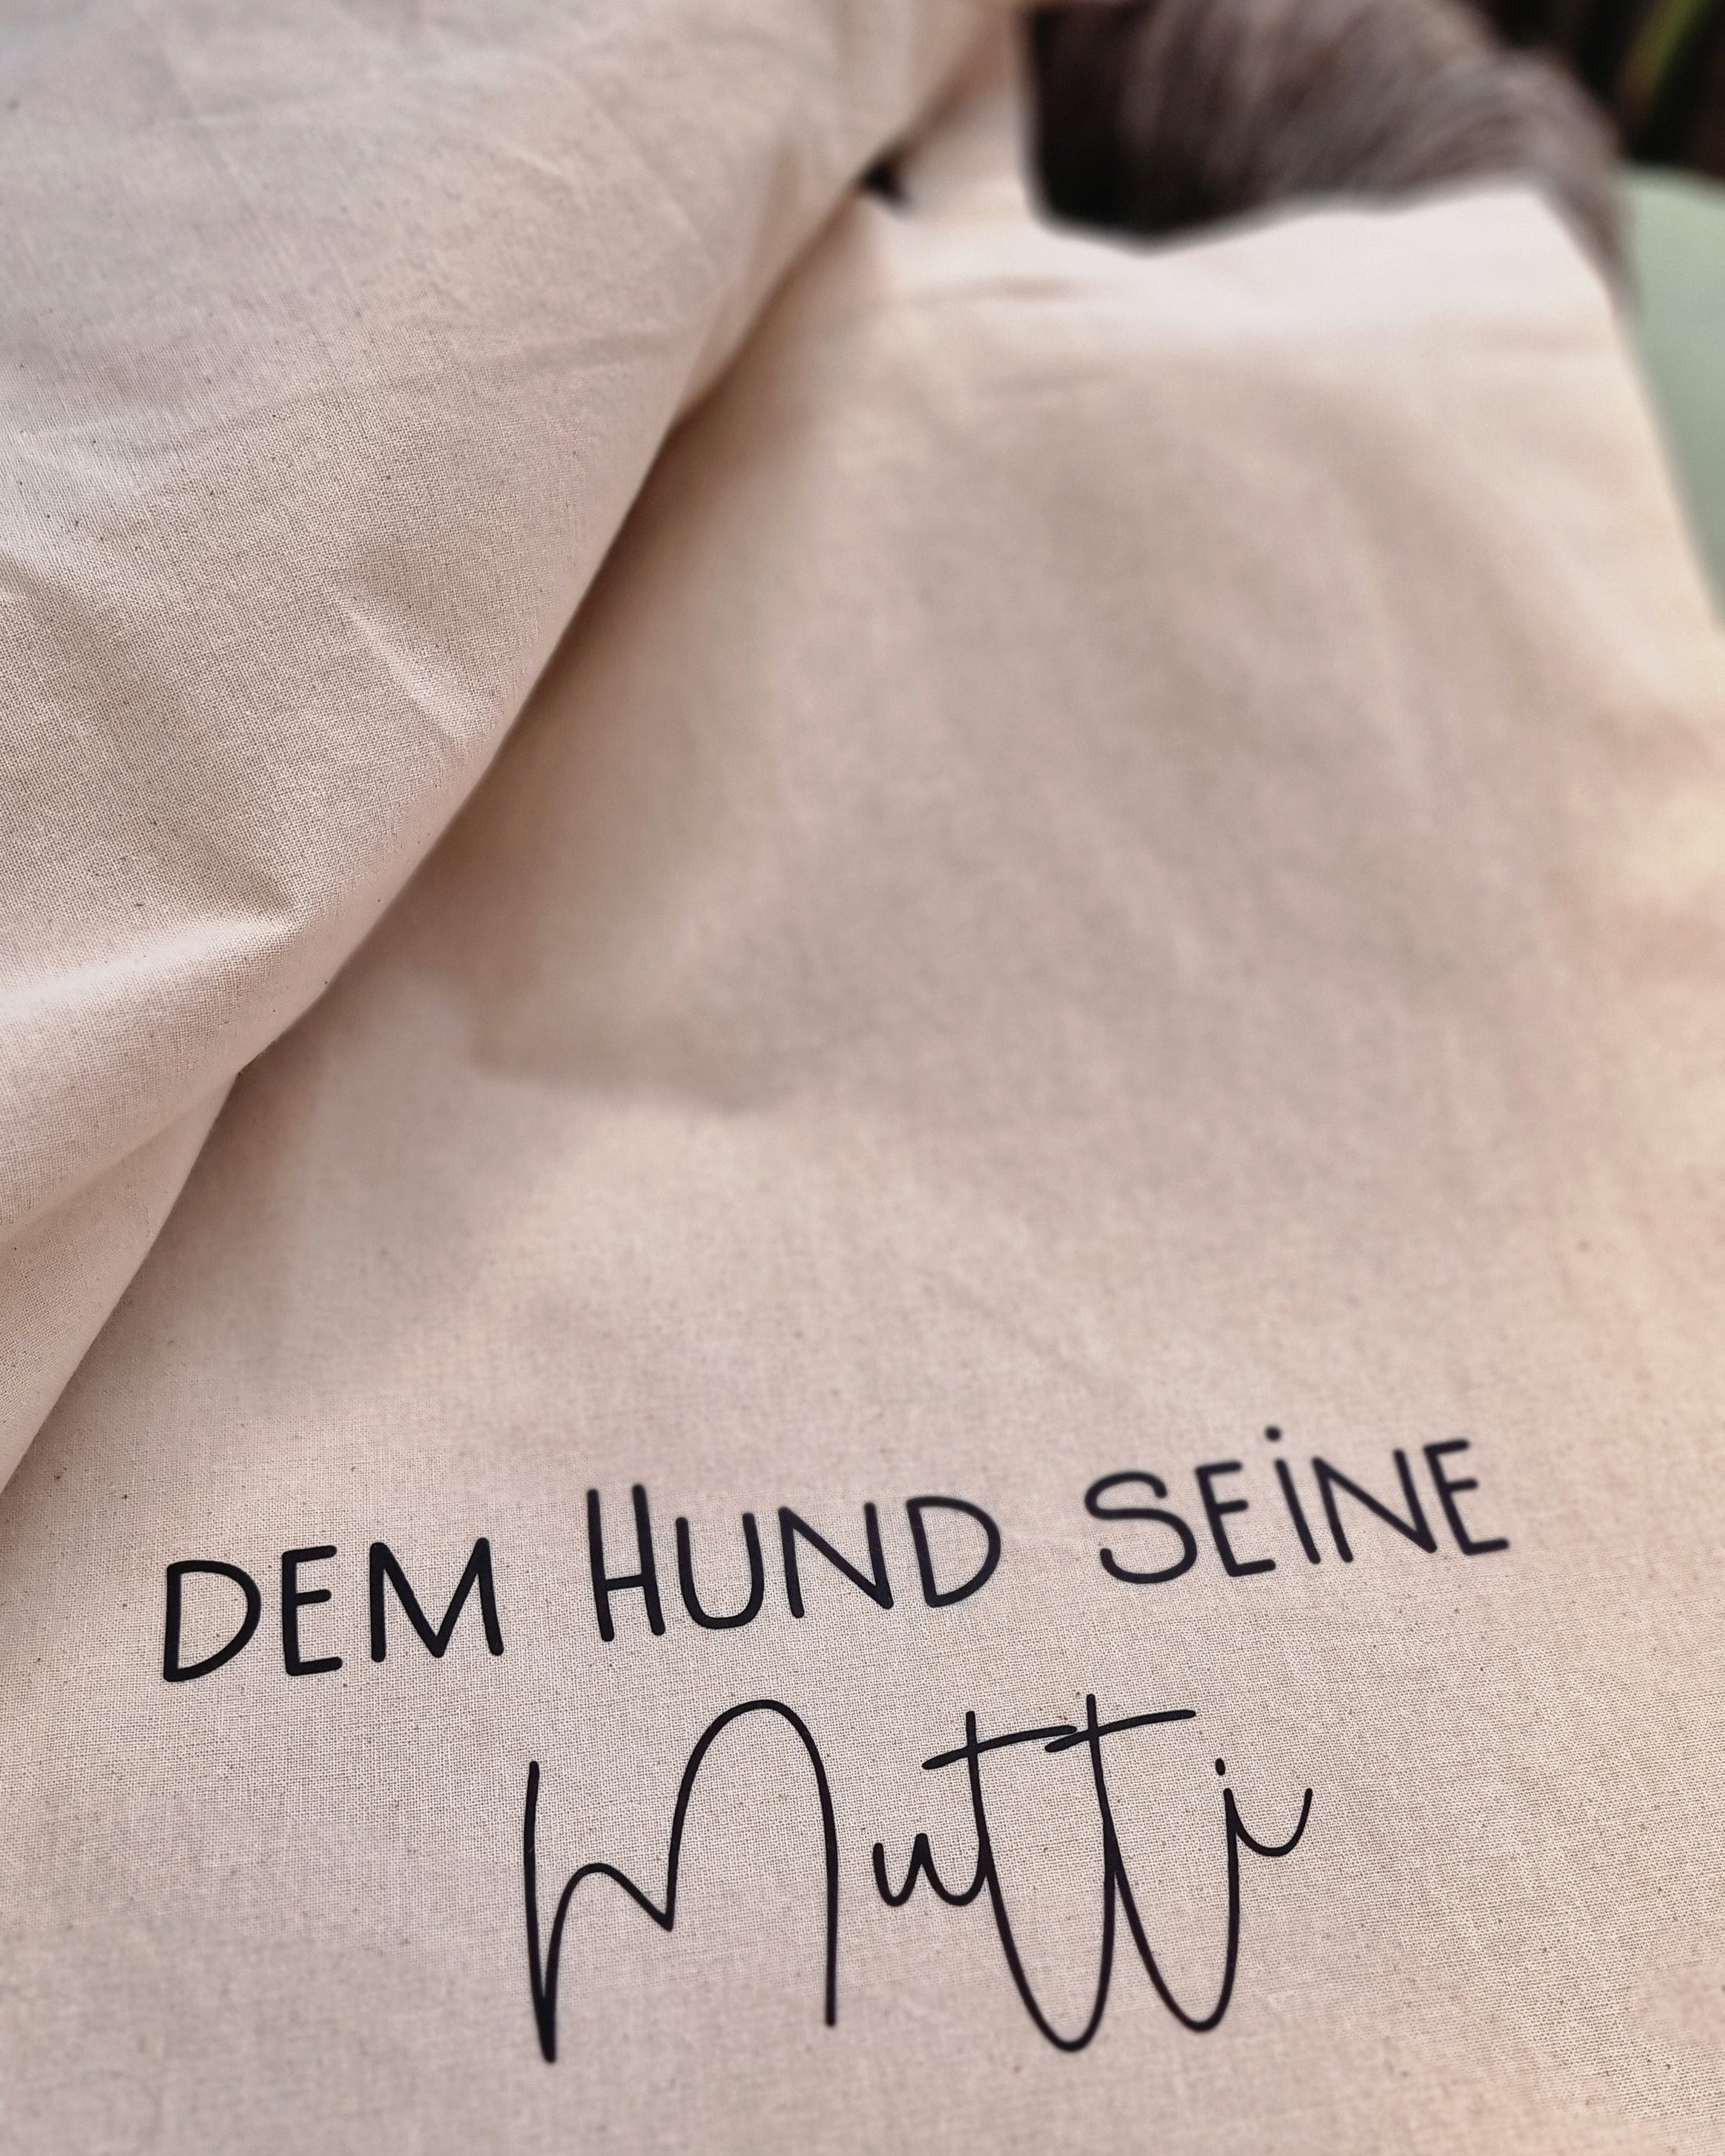 DEM HUND SEiNE
Mutti